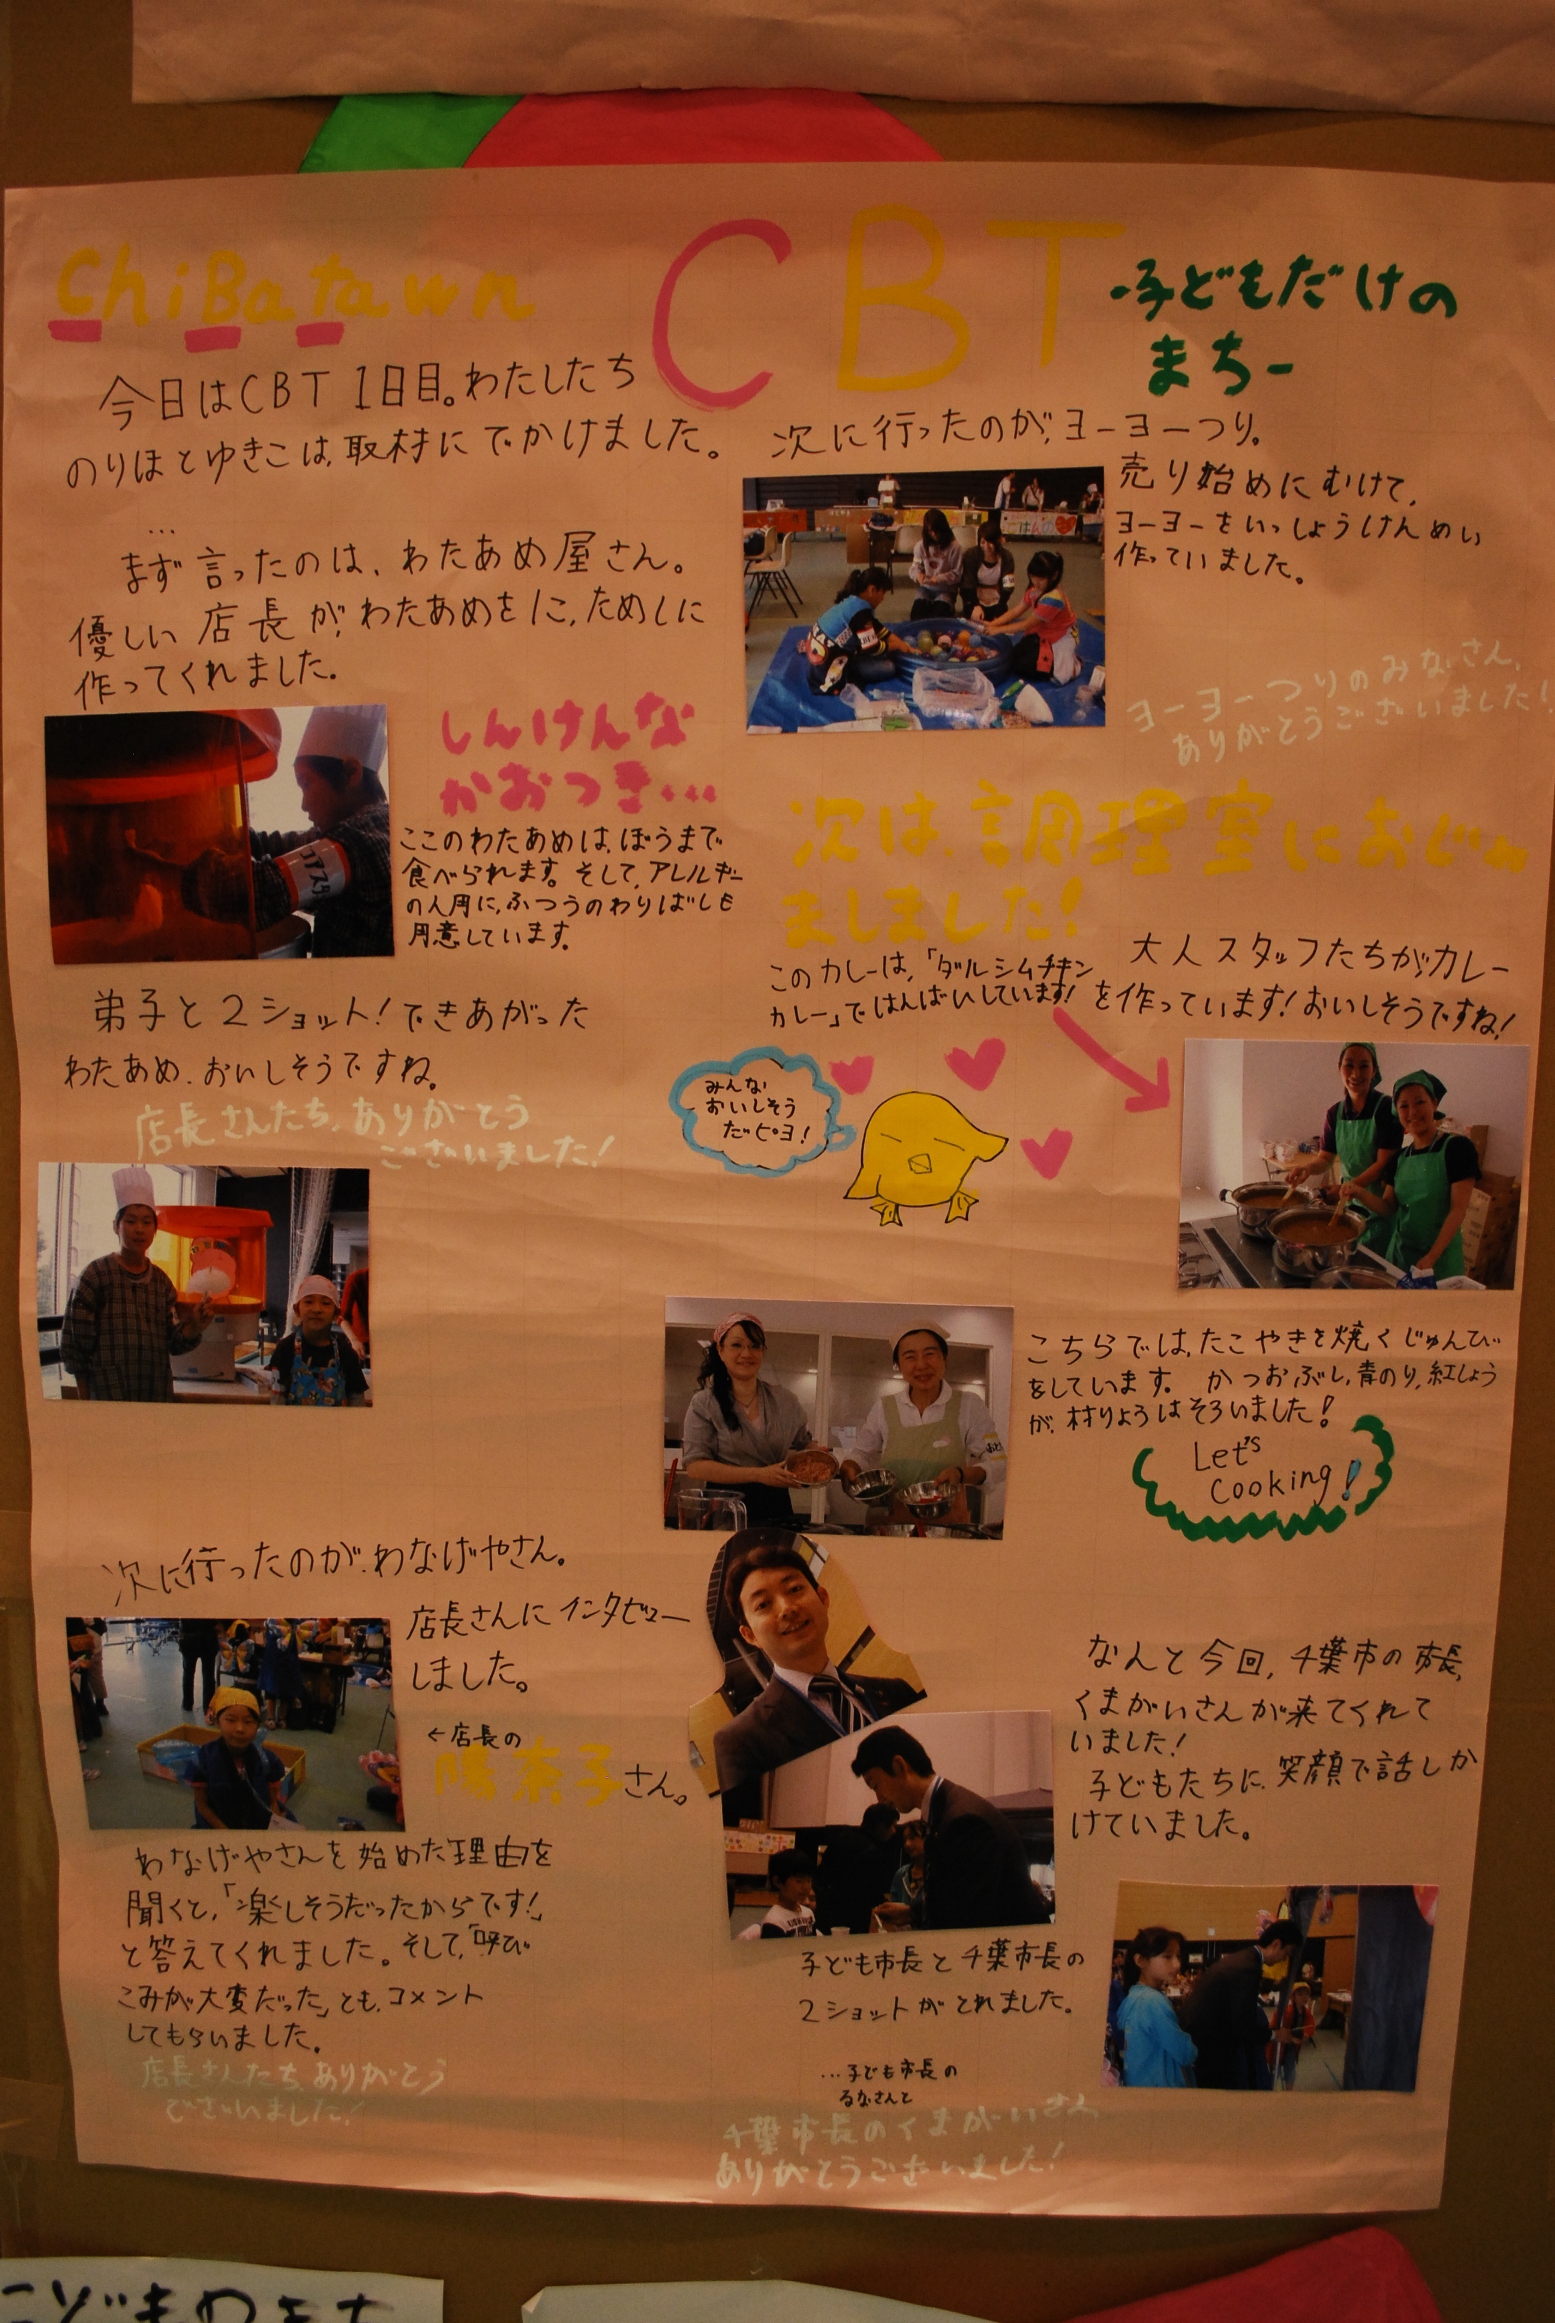 ChiBatawn
CBT
-子どもだけの
まち-
今日はCBT 1日目。わたしたち
のりほとゆきこは、取材にでかけました。
…
まず言ったのは、わたあめ屋さん。
優しい店長が、わたあめをに、ためしに
作ってくれました。
しんけんな
かおつき…
コアスタ
ここのわたあめは、ぼうまで
食べられます。そして、アレルギー
の人用に、ふつうのわりばしも
用意しています。
弟子と2ショット!できあがった
わたあめ、おいしそうですね。
店長さんたち、ありがとう
ございました!
次に行ったのが、わなげやさん。
店長さんにインタビュー
しました。
←店長の
陽奈子さん。
わなげやさんを始めた理由を
聞くと、「楽しそうだったからです!」
と答えてくれました。そして、「呼び
こみが大変だった」とも、コメント
してもらいました。
店長さんたち、ありがとう
ございました!
次に行ったのが、ヨーヨーつり。
売り始めにむけて、
ヨーヨーをいっしょうけんめい
作っていました。
ヨーヨーつりのみなさん、
ありがとうございました!
次は、調理室におじゃ
ましました!
大人スタッフたちがカレー
を作っています!おいしそうですね!
このカレーは、「ダルシムチキン
カレー」ではんばいしています!
みんな
おいしそう
だピヨ!
こちらでは、たこやきを焼くじゅんび
をしています。かつおぶし、青のり、紅しょう
が、材りょうはそろいました!
Let's
cooking!
なんと今回、千葉市の市長、
くまがいさんが来てくれて
いました!
子どもたちに、笑顔で話しか
けていました。
子ども市長と千葉市長の
2ショットがとれました。
…子ども市長の
るなさんと
千葉市長のくまがいさん
ありがとうございました!
こどものまち